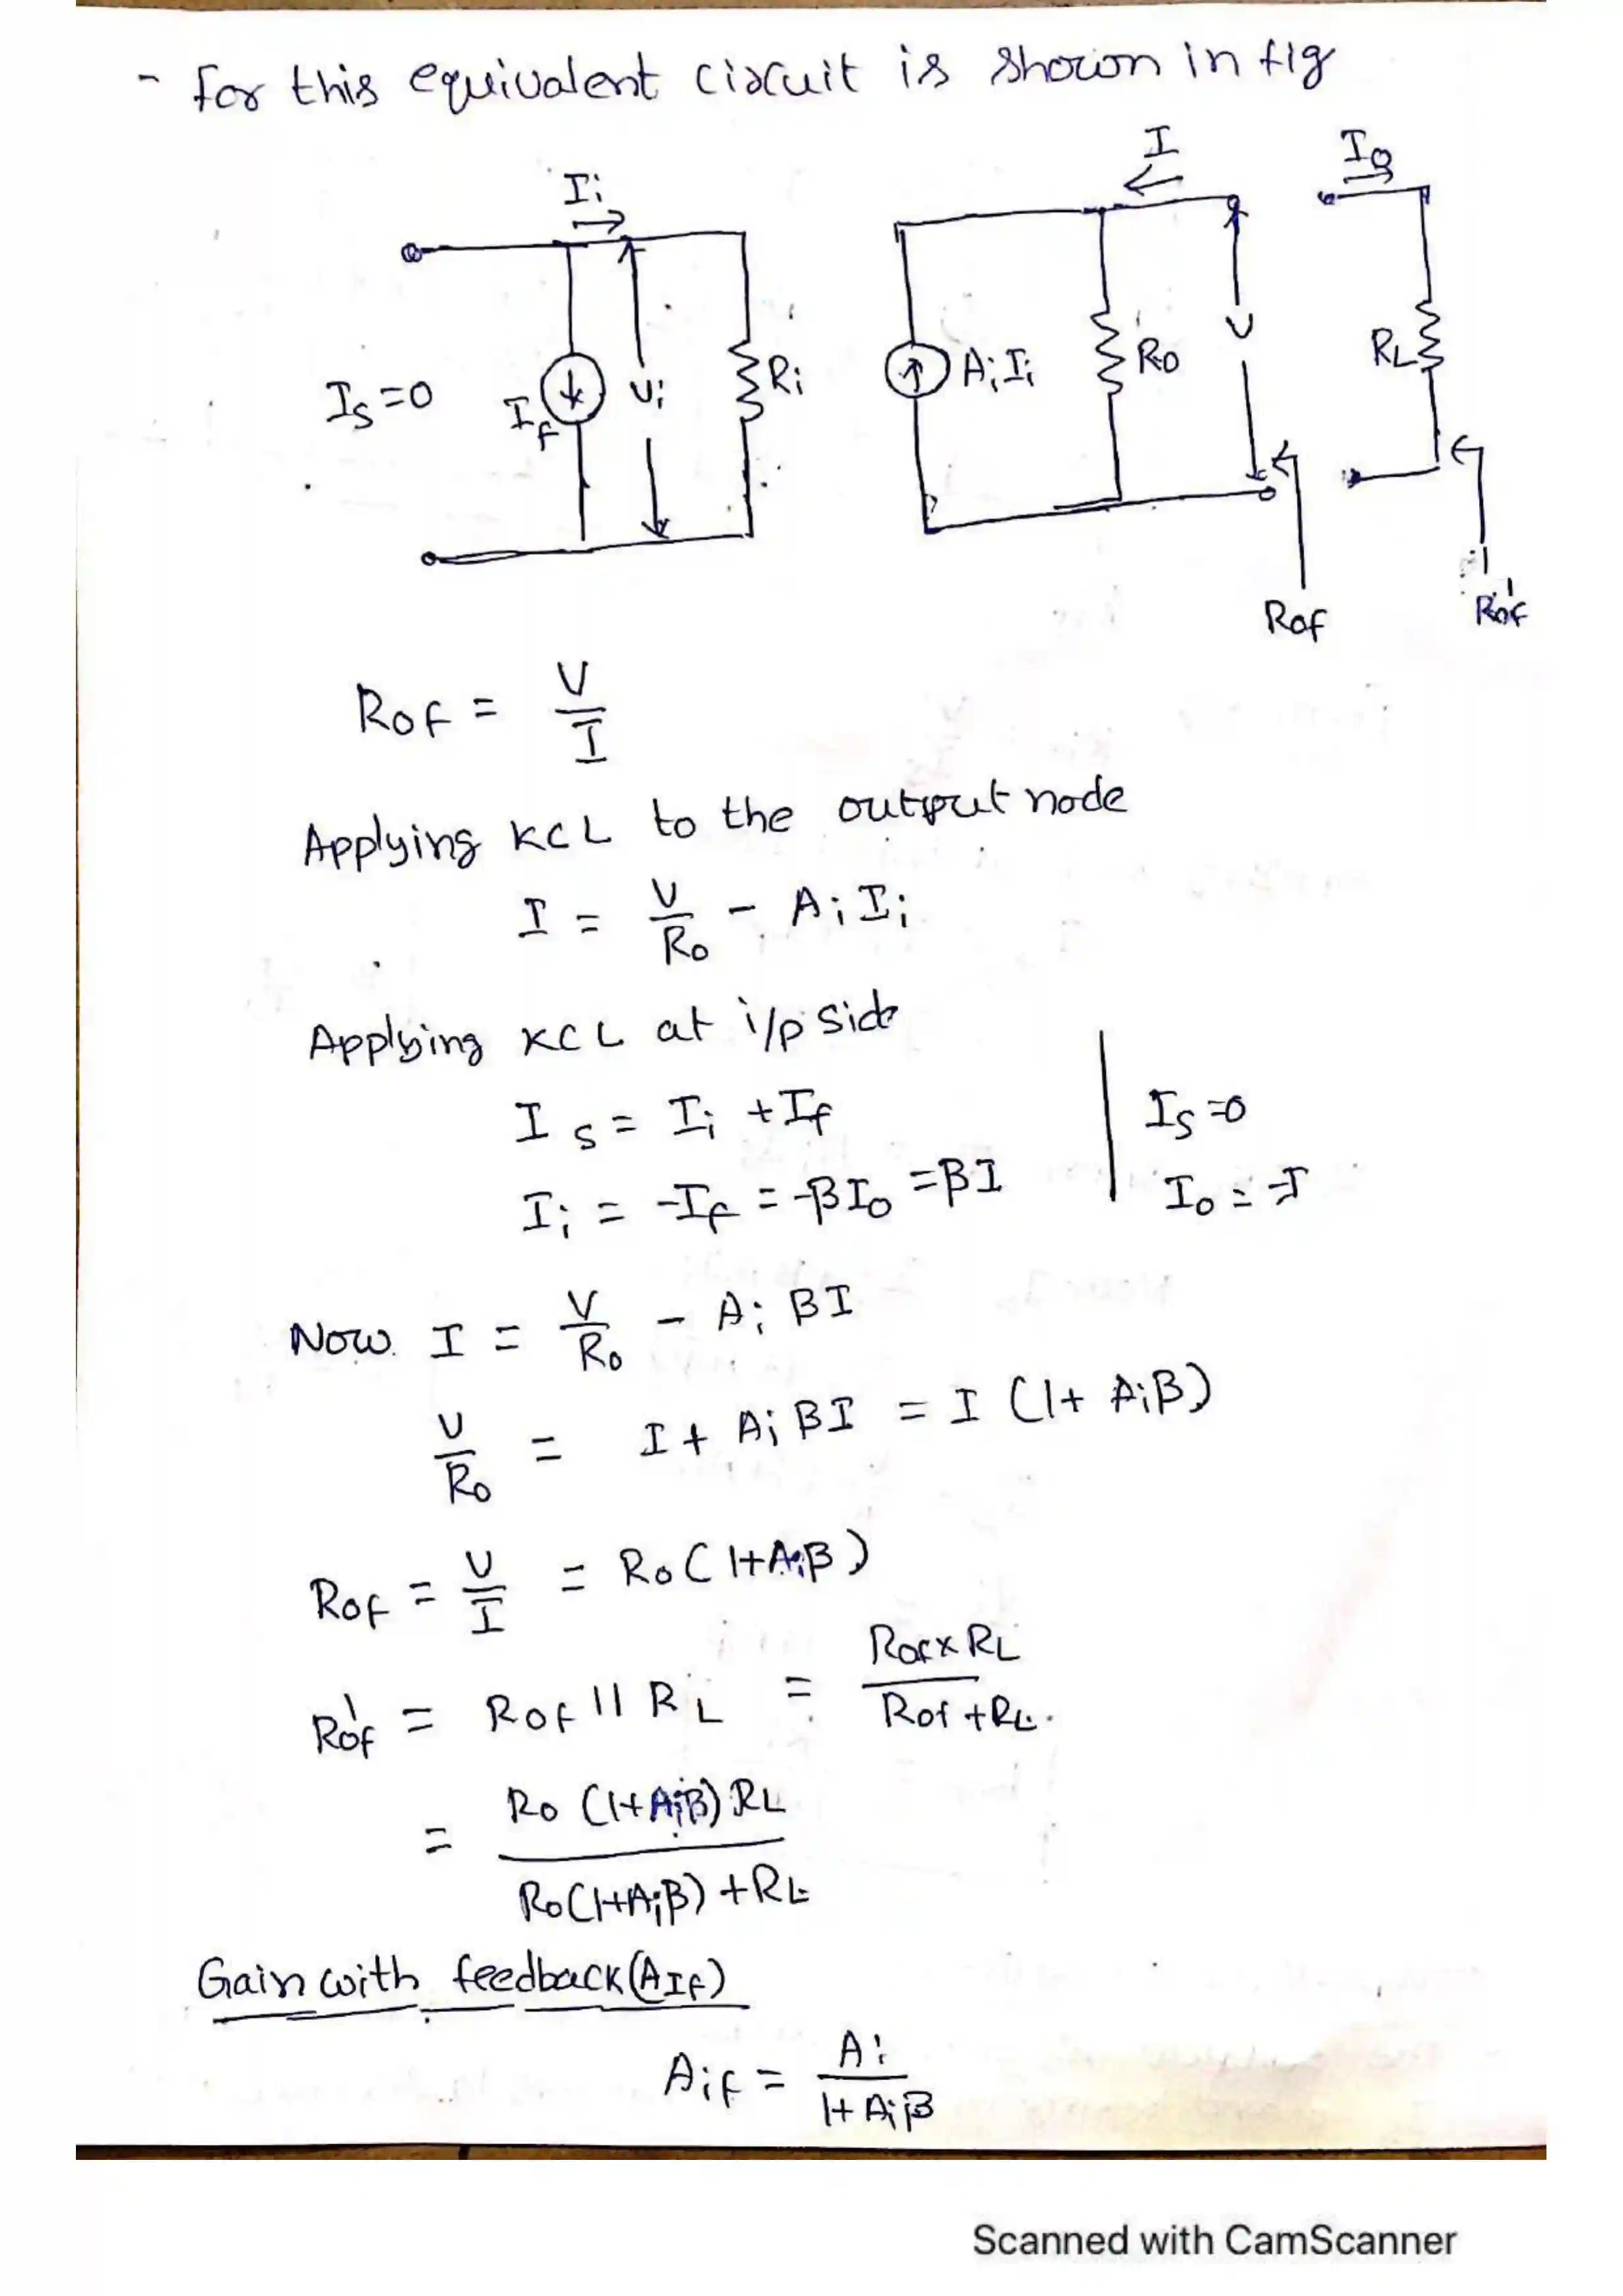 - for this equivalent circuit is shown in fig
I
Io
Ii
Is =0
If
Vi
Ri
AiIi
Ro
V
RL
Rof
R'of
Rof = V/I
Applying KCL to the output node
I = V/Ro - AiIi
Applying KCL at i/p side
Is = Ii + If
Is =0
Ii = -If = -βIo = βI
Io = -I
Now I = V/Ro - Ai βI
V/Ro = I + Ai βI = I (1+ Aiβ)
Rof = V/I = Ro (1+Aiβ)
R'of = Rof || RL = Rof x RL / Rof + RL.
= Ro (1+Aiβ) RL / Ro(1+Aiβ) + RL
Gain with feedback (AIf)
Aif = Ai / 1+ Aiβ
Scanned with CamScanner